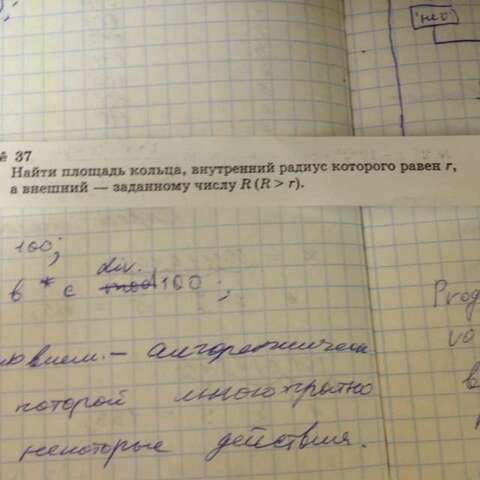 'нет'
№ 37
Найти площадь кольца, внутренний радиус которого равен r,
а внешний — заданному числу R (R > r).
100;
div.
в * с mod 100 ;
которой многократно
некоторые действия.
Prog
va